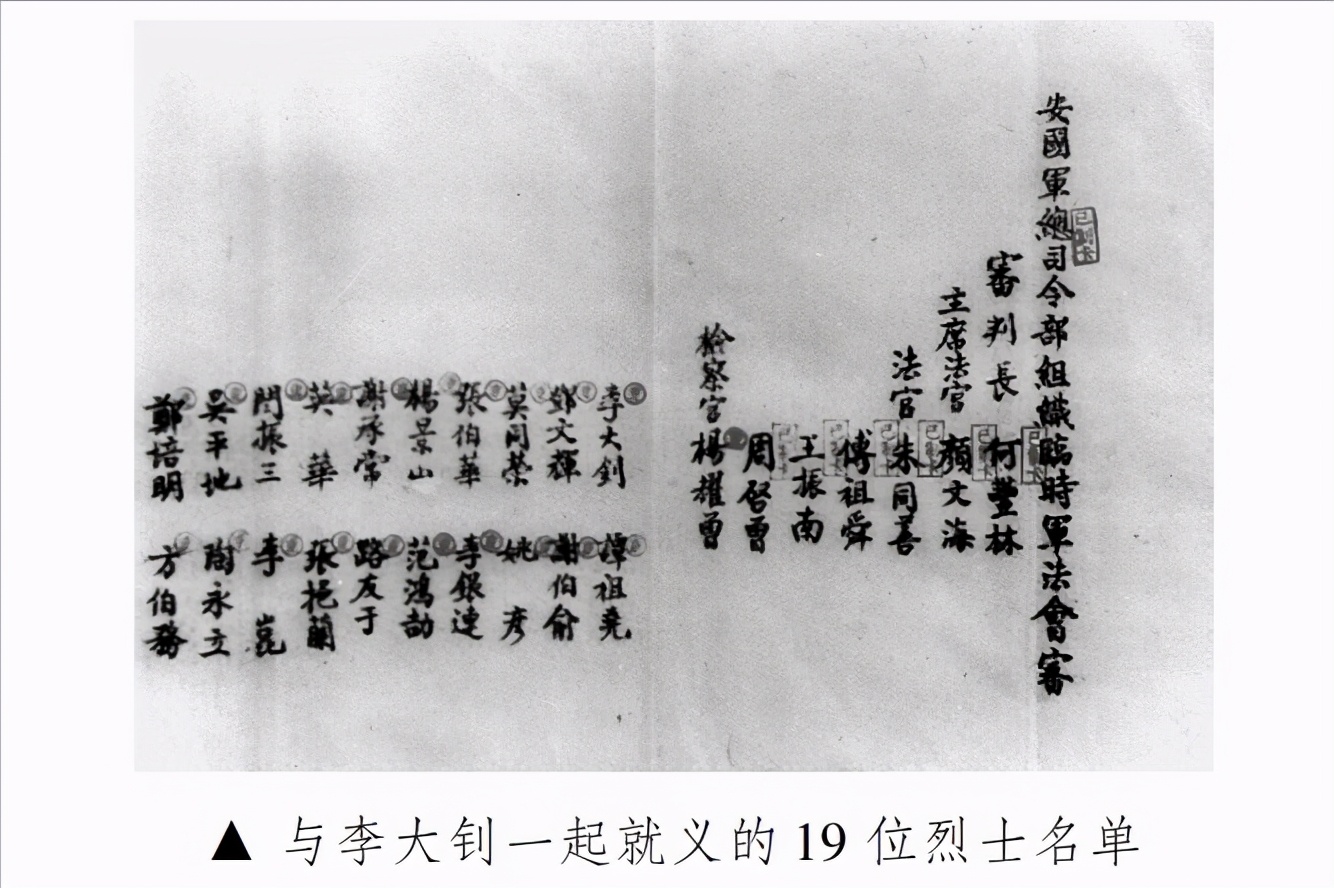 安國軍總司令部組織臨時軍法會審
已制卡
審判長 何豐林
主席法官 顏文海
法官 朱同善
傅祖舜
王振南
周啓曾
檢察官 楊耀曾
李大釗 譚祖堯
鄧文輝 謝伯俞
莫同榮 姚彥
張伯華 李銀連
楊景山 范鴻劼
謝承常 路友于
英華 張挹蘭
閻振三 李崑
吳平地 陶永立
鄭培明 方伯務
▲ 与李大钊一起就义的19位烈士名单